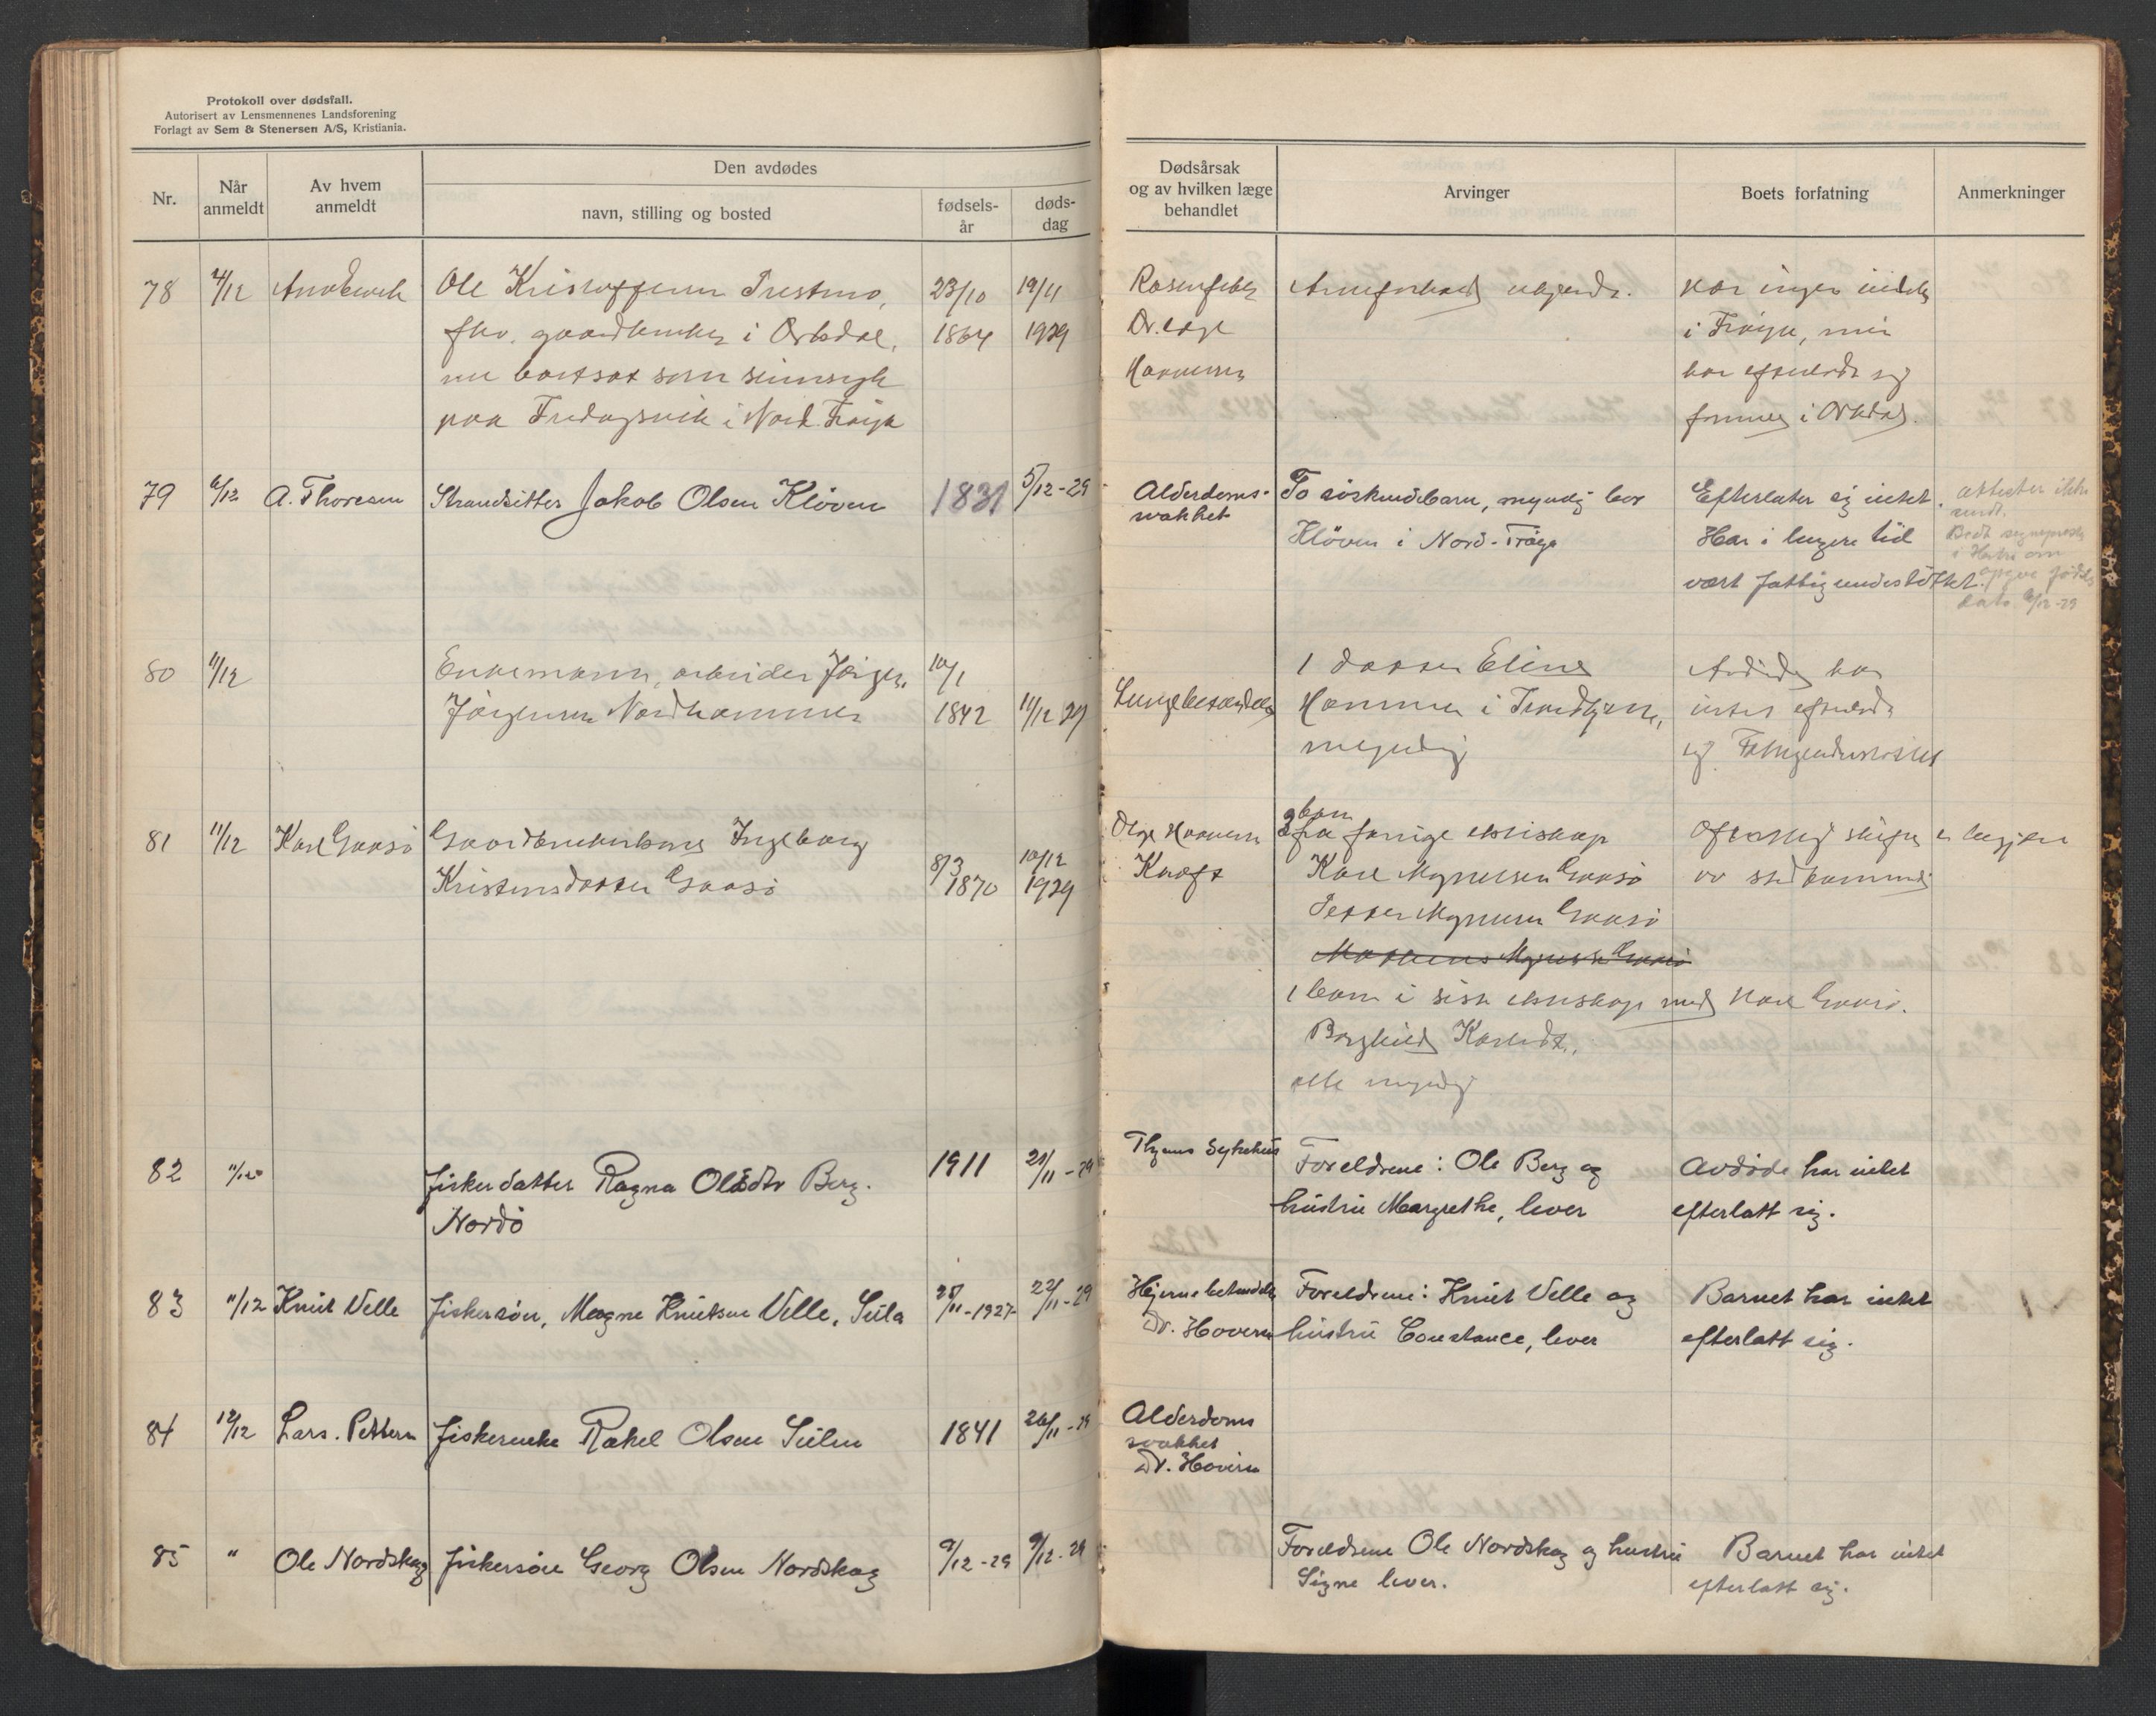 Protokoll over dødsfall.
Autorisert av Lensmennenes Landsforening
Forlagt av Sem & Stenersen A/S, Kristiania.
Nr.
Når anmeldt
Av hvem anmeldt
Den avdødes
navn, stilling og bosted
fødsels-år
døds-dag
Dødsårsak og av hvilken læge behandlet
Arvinger
Boets forfatning
Anmerkninger
78 4/12 Ole Kristoffersen 23/10 19/11
fhv. gaardbruker i Orkdal, 1864 1929
nu bortsat som sinnsyk
paa i Nord Frøya
Dr.
Har intet
i Frøya, men
har efterladt sig
i Orkdal.
79 6/12 A. Thoresen Strandsitter Jakob Olsen Kløven 1831 5/12-29
Alderdoms-
svakhet
To søskendebarn, myndig bor
Kløven i Nord-Frøya
Efterlater sig intet.
Har i lengere tid
vært fattigunderstøttet.
attester ikke
sendt.
80 11/12 Enkemann, arbeider Jørgen 10/1
Jørgensen Nordhammer 1842 11/12 29
Lungebetændelse
1 datter Eline
Hammer i Trondhjem,
myndig
Avdøde har
intet efterladt
sig. Fattigunderstøttet
81 11/12 Karl Gaasø Gaardbrukerkone Ingeborg
Kristensdatter Gaasø 8/3 1870 10/12 1929
Kræft
2 barn
fra forrige ekteskap
Karl Gaasø
Petter Gaasø
1 barn i siste ekteskap med Karl Gaasø.
Borghild Karlsdt.,
alle myndig
Offentlig skifte er begjært
av stedkommende
82 11/12 Fiskerdatter Ragna Olsdtr Berg. 1911 21/11-29
Nordø
Sykehus
Foreldrene: Ole Berg og
hustru Margrethe, lever
Avdøde har intet
efterlatt sig.
83 11/12 Knut Velle Fiskersøn, Magne Knutsen Velle, Sula 25/11-1927 22/11-29
Hjernebetændelse
Dr.
Foreldrene: Knut Velle og
hustru Constance, lever
Barnet har intet
efterlatt sig.
84 12/12 Lars. Pettersn Fiskerenke Rakel Olsen Sulen 1841 26/11-29
Alderdoms
svakhet
Dr.
85 " Ole Nordskag Fiskersøn Georg Olsen Nordskag 9/12-29 9/12-29
Foreldrene Ole Nordskag og hustru
Signe lever.
Barnet har intet
efterlatt sig.